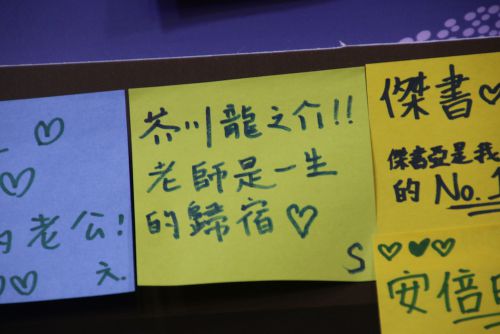 老公!
六.
芥川龍之介!!
老師是一生
的歸宿♡
S
傑書♡
傑書亞是我
的 No.1
♡♥♡
安倍